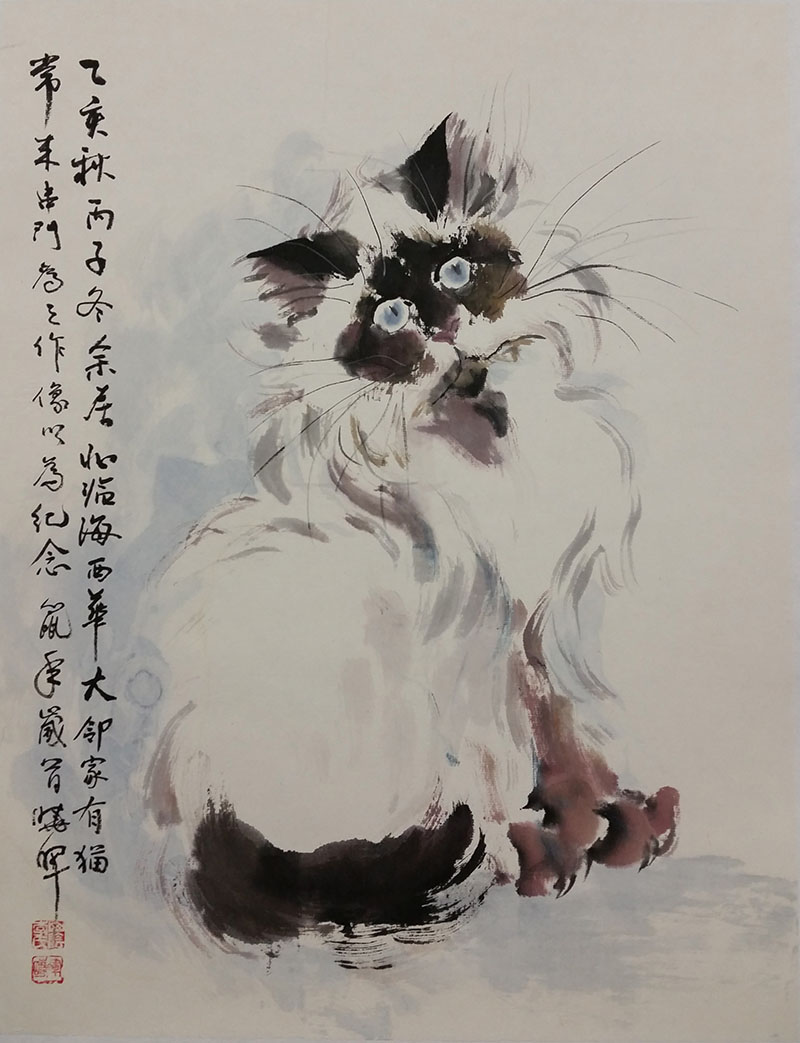 乙亥秋丙子冬余居北临海西华大邻家有猫
常来串門为之作像以為纪念鼠年歲首晓晖